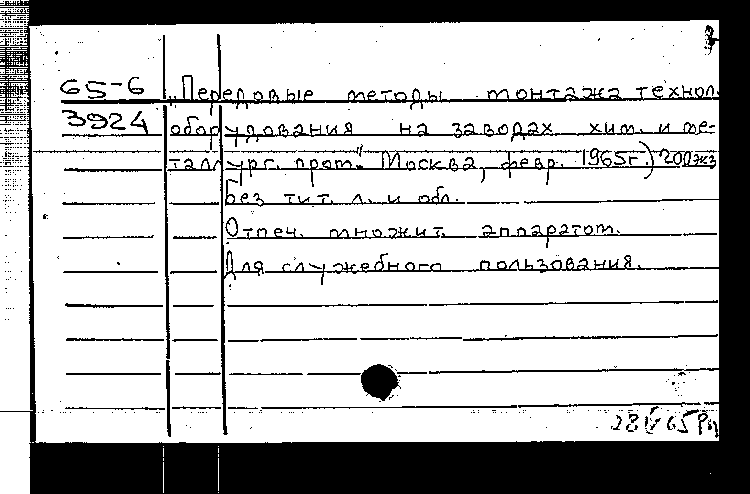 65-6 „Передовые методы монтажа технол.
3924 оборудования на заводах хим. и ме-
таллург. пром." Москва, февр. 1965г.) 200экз
Без тит. л. и обл.
Отпеч. множит. аппаратом.
Для служебного пользования.
28 IV 65